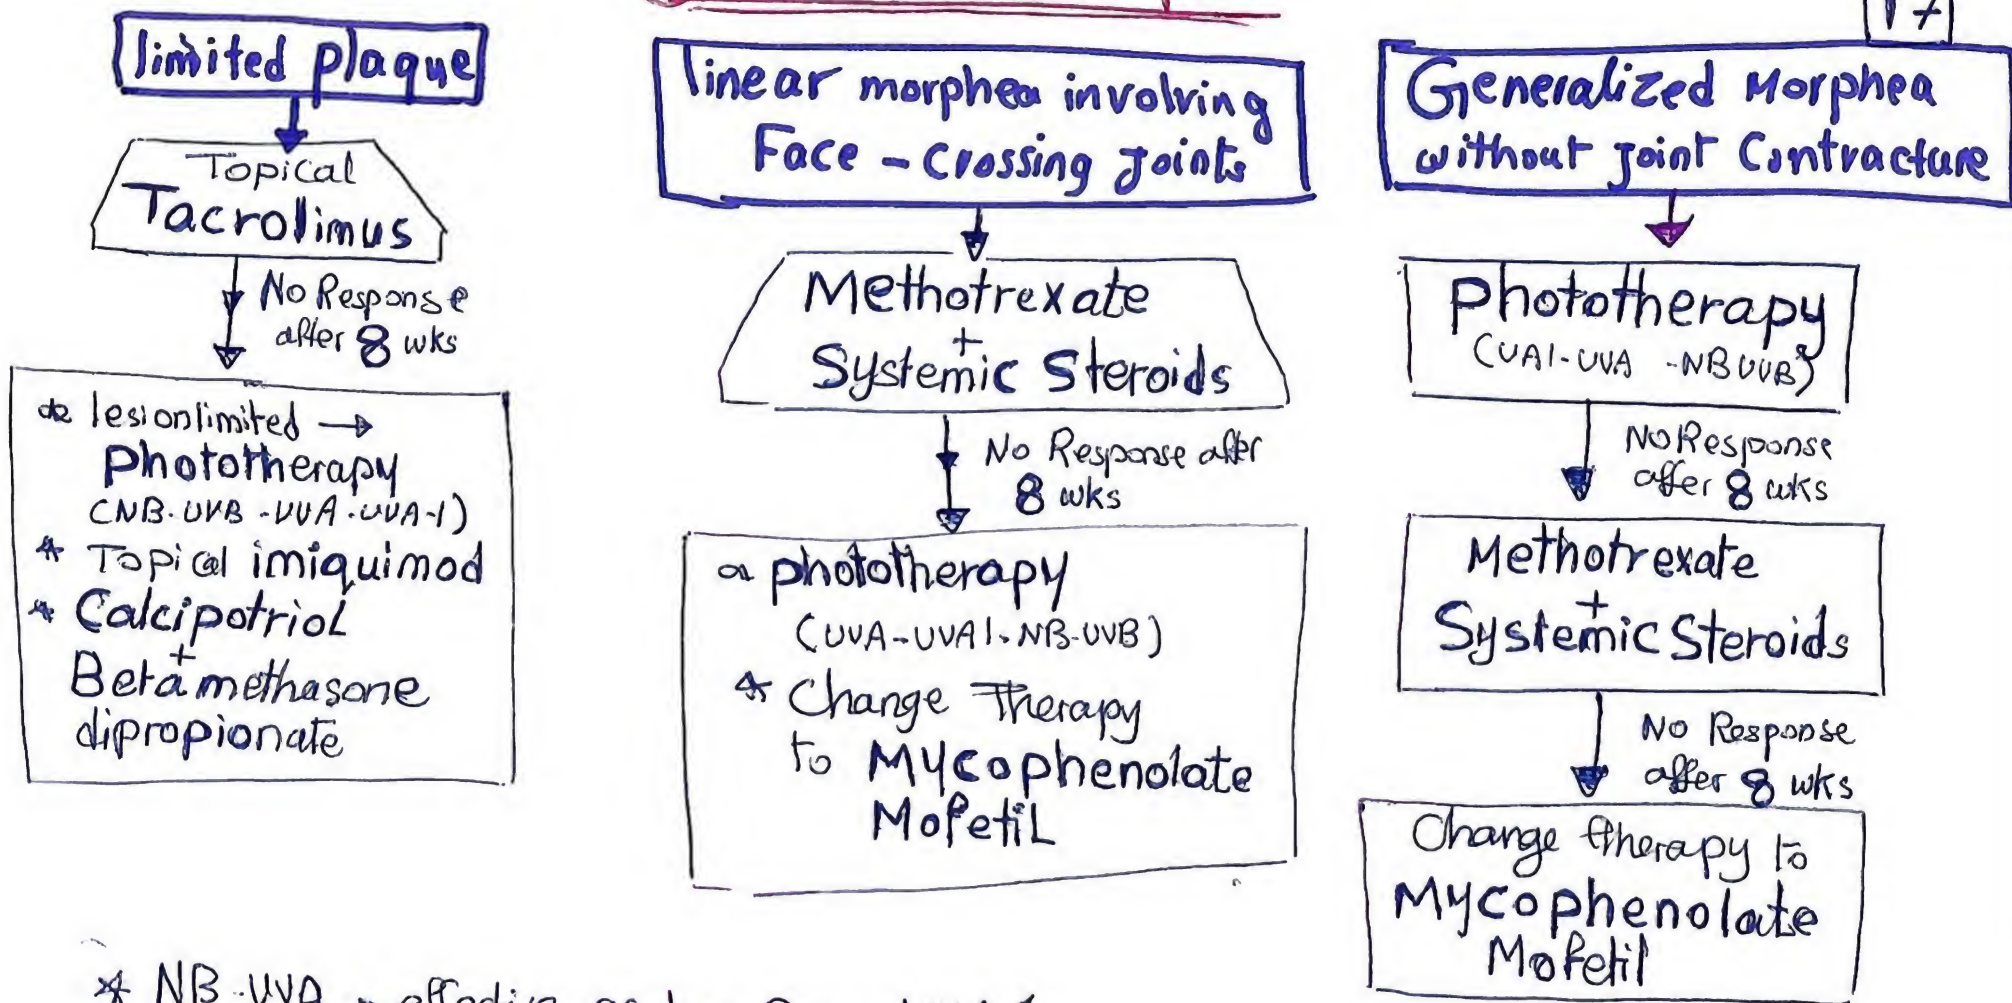 17
limited plaque
Topical
Tacrolimus
No Response
after 8 wks
lesionlimited →
Phototherapy
(NB-UVB-UVA-UVA-1)
* Topical imiquimod
* Calcipotriol
+
Betamethasone
dipropionate
linear morphea involving
Face - Crossing Joints
Methotrexate
+
Systemic Steroids
No Response after
8 wks
phototherapy
(UVA-UVA1-NB-UVB)
* Change Therapy
to Mycophenolate
Mofetil
Generalized Morphea
without Joint Contracture
Phototherapy
(UA1-UVA-NBUVB)
No Response
after 8 wks
Methotrexate
+
Systemic Steroids
No Response
after 8 wks
Change therapy to
Mycophenolate
Mofetil
* NB-UVA